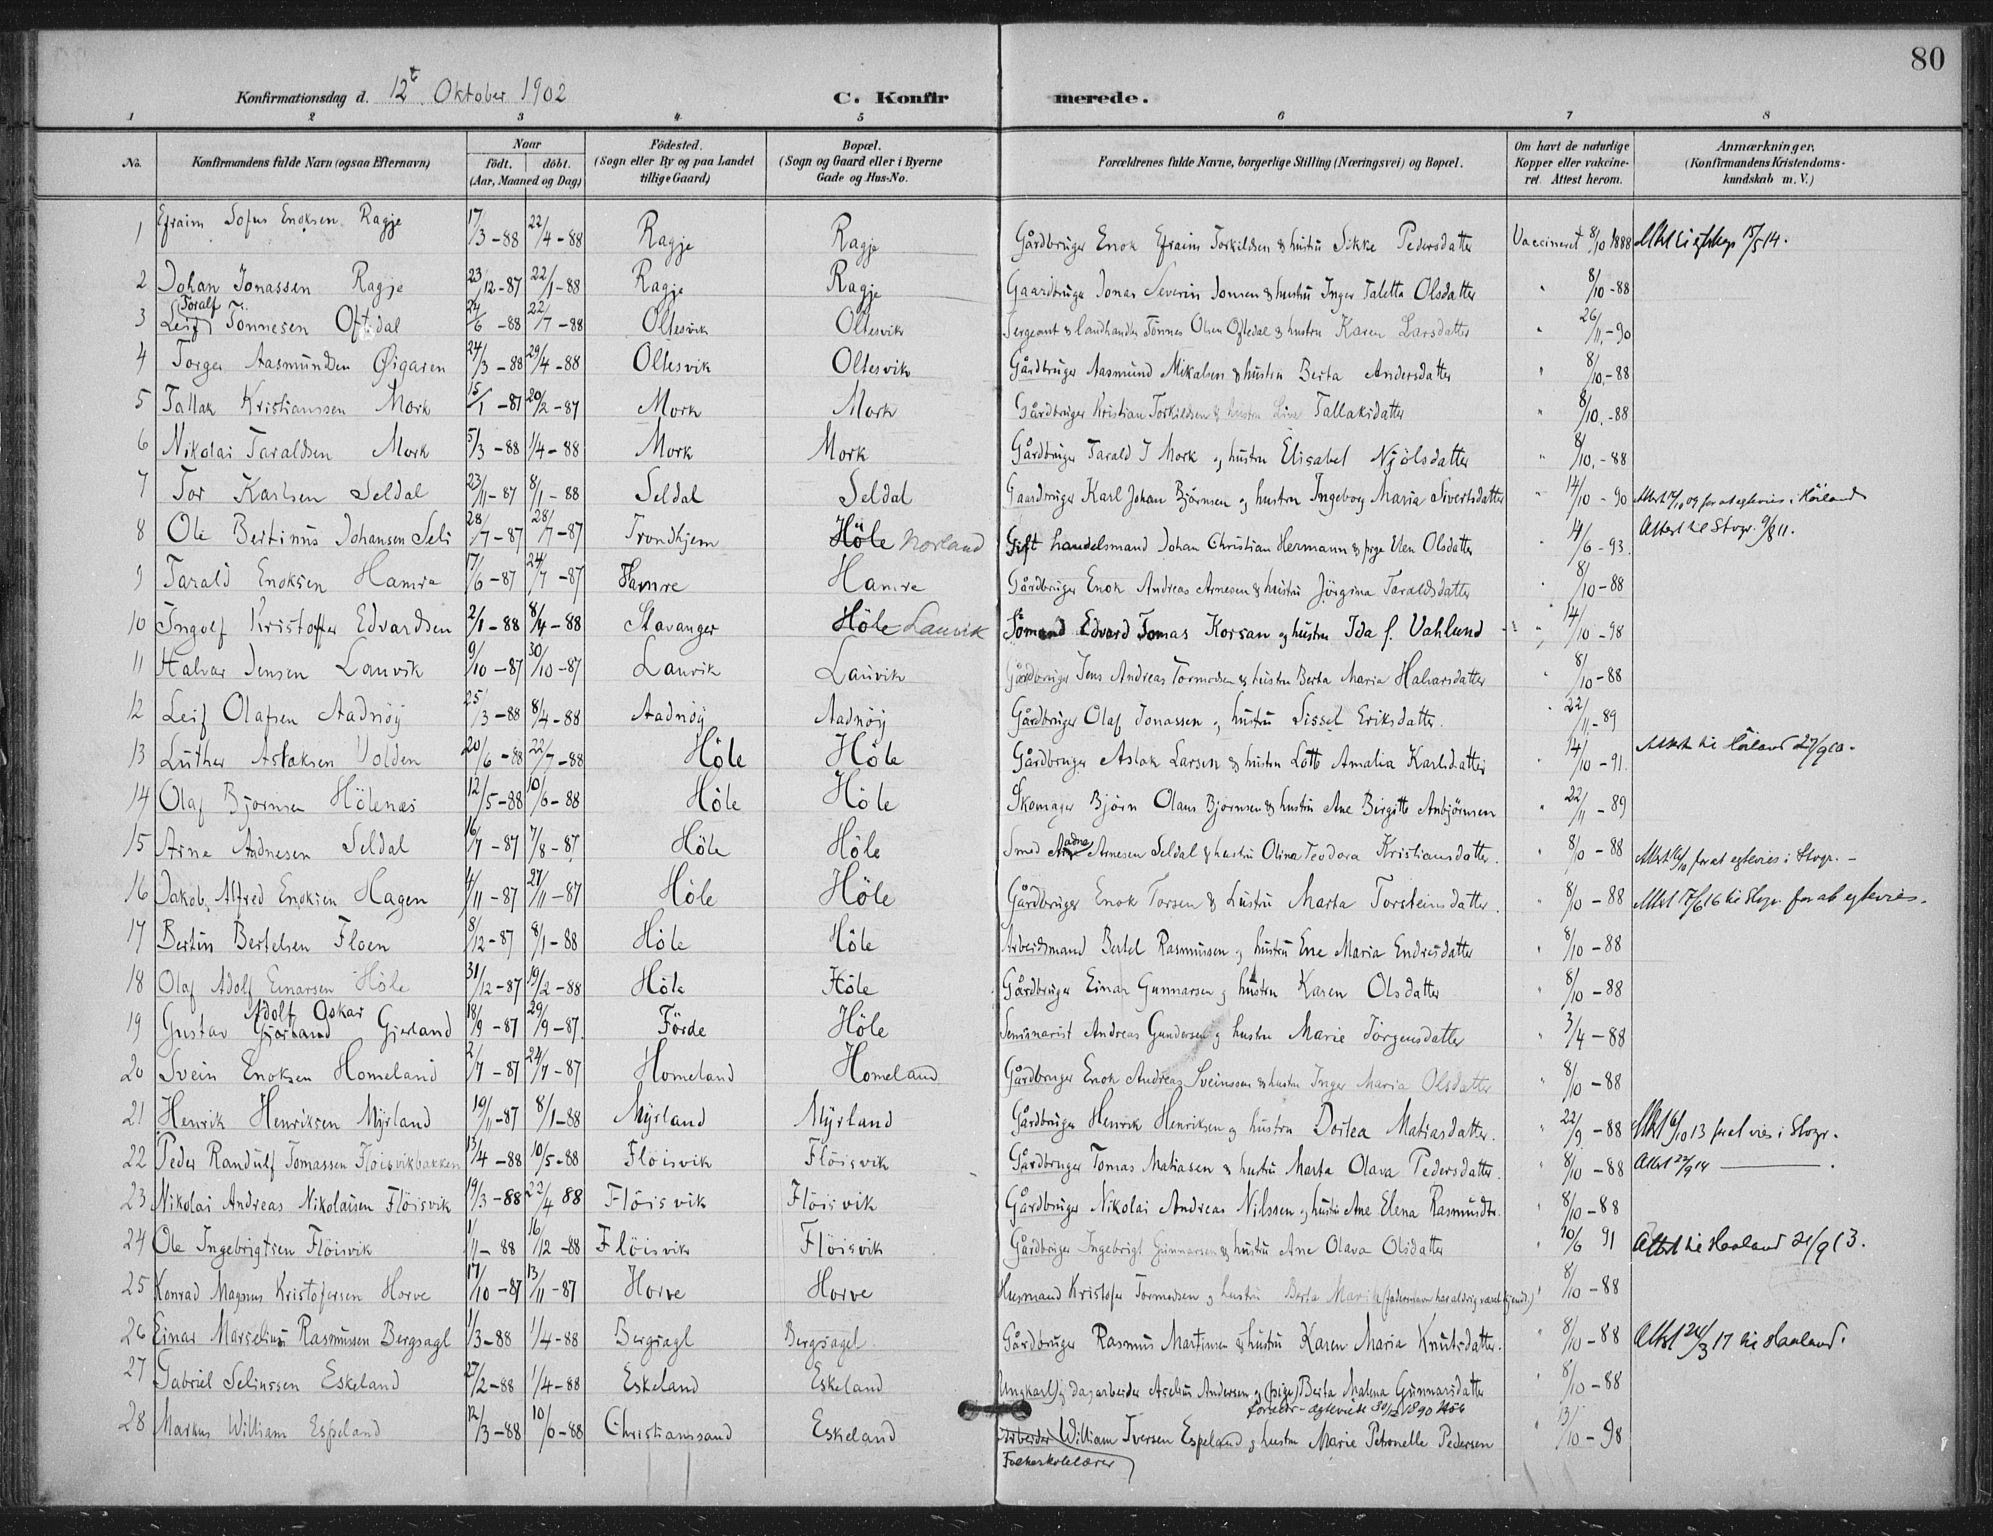 80
Konfirmationsdag d. 12te Oktober 1902 C. Konfirmerede.
1 2 3 4 5 6 7 8
No. Konfirmandens fulde Navn (ogsaa Efternavn) Naar født. døbt. (Aar, Maaned og Dag) Fødested. (Sogn eller By og paa Landet tillige Gaard) Bopæl. (Sogn og Gaard eller i Byerne Gade og Hus-No. Forældrenes fulde Navne, borgerlige Stilling (Næringsvei) og Bopæl. Om havt de naturlige Kopper eller vakcineret. Attest herom. Anmærkninger. (Konfirmandens Kristendomskundskab m. V.)
1 Efraim Sofus Enoksen Ragje 17/3-88 22/4-88 Ragje Ragje Gårdbruger Enok Efraim Torkildsen & hustru Sikke Pedersdatter Vaccineret 8/10 1888 15/5 14.
2 Johan Jonassen Ragje 23/12-87 22/1-88 Ragje Ragje Gaardbruger Jonas Severin Jonsen & hustru Inger Taletta Olsdatter " 8/10-88
3 Leif Toralf Tönnesen Oftedal 24/6-88 22/7-88 Oltesvik Oltesvik Sergeant & landhandler Tönnes Olsen Oftedal & hustru Karen Larsdatter " 26/11-90
4 Torger Aasmundsen Øigaren 24/3-88 29/4-88 Oltesvik Oltesvik Gårdbruger Aasmund Mikalsen & hustru Berta Andersdatter " 8/10-88
5 Tallak Kristianssen Mork 15/1-87 20/2-87 Mork Mork Gårdbruger Kristian Torkildsen & hustru Lisa Tallaksdatter " 8/10-88
6 Nikolai Taraldsen Mork 5/3-88 1/4-88 Mork Mork Gårdbruger Tarald J Mork og hustru Elisabet Njölsdatter " 8/10-88
7 Tor Karlsen Seldal 23/11-87 8/1-88 Seldal Seldal Gaardbruger Karl Johan Bjørnsen og hustru Ingeborg Maria Sivertsdatter " 14/10-90 Attest 14/10 09 for at egtevies i Höiland
8 Ole Bertinus Johansen Seli 28/7-87 28/7-87 Trondhjem Höle Norland Gift handelsmand Johan Christian Hermann & pige Elen Olsdatter " 4/6-93. Attest til Stvgr. 9/8 11.
9 Tarald Enoksen Hamre 17/6-87 24/7-87 Hamre Hamre Gårdbruger Enok Andreas Arnesen & hustru Jörgina Taraldsdatter " 8/10-88
10 Ingolf Kristoffer Edvardsen 2/1-88 8/4-88 Stavanger Höle Lauvik Sömand Edvard Tomas Korsan og hustru Ida f. Vahlund " 14/10-98
11 Halvar Jensen Lauvik 9/10-87 30/10-87 Lauvik Lauvik Gårdbruger Jens Andreas Tormodsen & hustru Berta Maria Halvarsdatter " 8/10-88
12 Leif Olafsen Aadnøy 25/3-88 8/4-88 Aadnøy Aadnøy Gårdbruger Olaf Jonassen og hustru Sissel Eriksdatter. " 22/11-89
13 Luther Aslaksen Volden 20/6-88 22/7-88 Höle Höle Gårdbruger Aslak Larsen & hustru Lotte Amalia Karlsdatter " 14/10-91. Attest til Höiland 27/9 10.
14 Olaf Bjørnsen Hölenæs 12/5-88 10/6-88 Höle Höle Skomager Bjørn Olaus Bjørnsen & hustru Ane Birgitte Anbjörnsen " 22/11-89
15 Arne Aadnesen Seldal 16/7-87 7/8-87. Höle Höle Smed Aadne Arnesen Seldal & hustru Olina Teodora Kristiansdatter. " 8/10-88 for at egtevies i Stvgr. -
16 Jakob Alfred Enoksen Hagen 4/11-87 27/11-87 Höle Höle Gårdbruger Enok Torsen & hustru Marta Torsteinsdatter. " 8/10-88 Attest 17/6 16 til Stvgr. for at egtevies.
17 Bertin Bertelsen Floen 8/12-87 8/1-88 Höle Höle Arbeidsmand Bertel Rasmussen og hustru Ene Maria Endresdatter " 8/10-88
18 Olaf Adolf Einarsen Höle 31/12-87 19/2-88 Höle Höle Gårdbruger Einar Gunnarsen og hustru Karen Olsdatter " 8/10-88
19 Gustav Adolf Oskar Gjerland 18/9-87 29/9-87. Förde Höle Seminarist Andreas Gundersen og hustru Marie Jörgensdatter " 3/4-88
20 Svein Enoksen Homeland 2/7-87 24/7-87 Homeland Homeland Gårdbruger Enok Andreas Sveinsson & hustru Inger Maria Olsdatter " 8/10-88
21 Henrik Henriksen Myrland 19/11-87 8/1-88 Myrland Myrland Gårdbruger Henrik Henriksen og hustru Dortea Matiasdatter. " 22/9-88 Attest 6/10 13 for at vies i Stvgr.
22 Peder Randulf Tomassen Flöisvikbakken 13/4-88 10/5-88 Flöisvik Flöisvik Gårdbruger Tomas Matiasen & hustru Marta Olava Pedersdatter. " 8/10-88 Attest 22/9 14
23 Nikolai Andreas Nikolaisen Flöisvik 19/3-88 22/4 88 Flöisvik Flöisvik Gårdbruger Nikolai Andreas Nilssen og hustru Ane Elena Rasmusdtr. " 8/10-88
24 Ole Ingebrigtsen Flöisvik 1/11-88 16/12-88 Flöisvik Flöisvik Gårdbruger Ingebrigt Gunnarsen & hustru Ane Olava Olsdatter " 10/6 91 Attest til Haaland 21/9 13.
25 Konrad Magnus Kristofersen Horve 17/10-87 13/11-87 Horve Horve Husmand Kristofer Tormodsen og hustru Berta Marie (fadernavn har aldrig været kjendt.) " 8/10-88
26 Einar Marselius Rasmussen Bergsagl 1/3-88 1/4-88 Bergsagl Bergsagel Gårdbruger Rasmus Martinsen & hustru Karen Maria Knutsdatter. " 8/10-88 Attest 24/3 17 til Haaland.
27 Gabriel Selinssen Eskeland 27/2-88 1/4-88 Eskeland Eskeland Ungkarl og dagarbeider Aselius Andersen og (pige) Berta Malena Gunnarsdatter " 8/10-88
foreldr. egteviede 30/12 1890
28 Markus William Espeland 12/3-88 10/6-88 Christianssand Eskeland Arbeider William Iversen Espeland og hustru Marie Petronelle Pedersen " 13/10-98
Folkeskolelærer